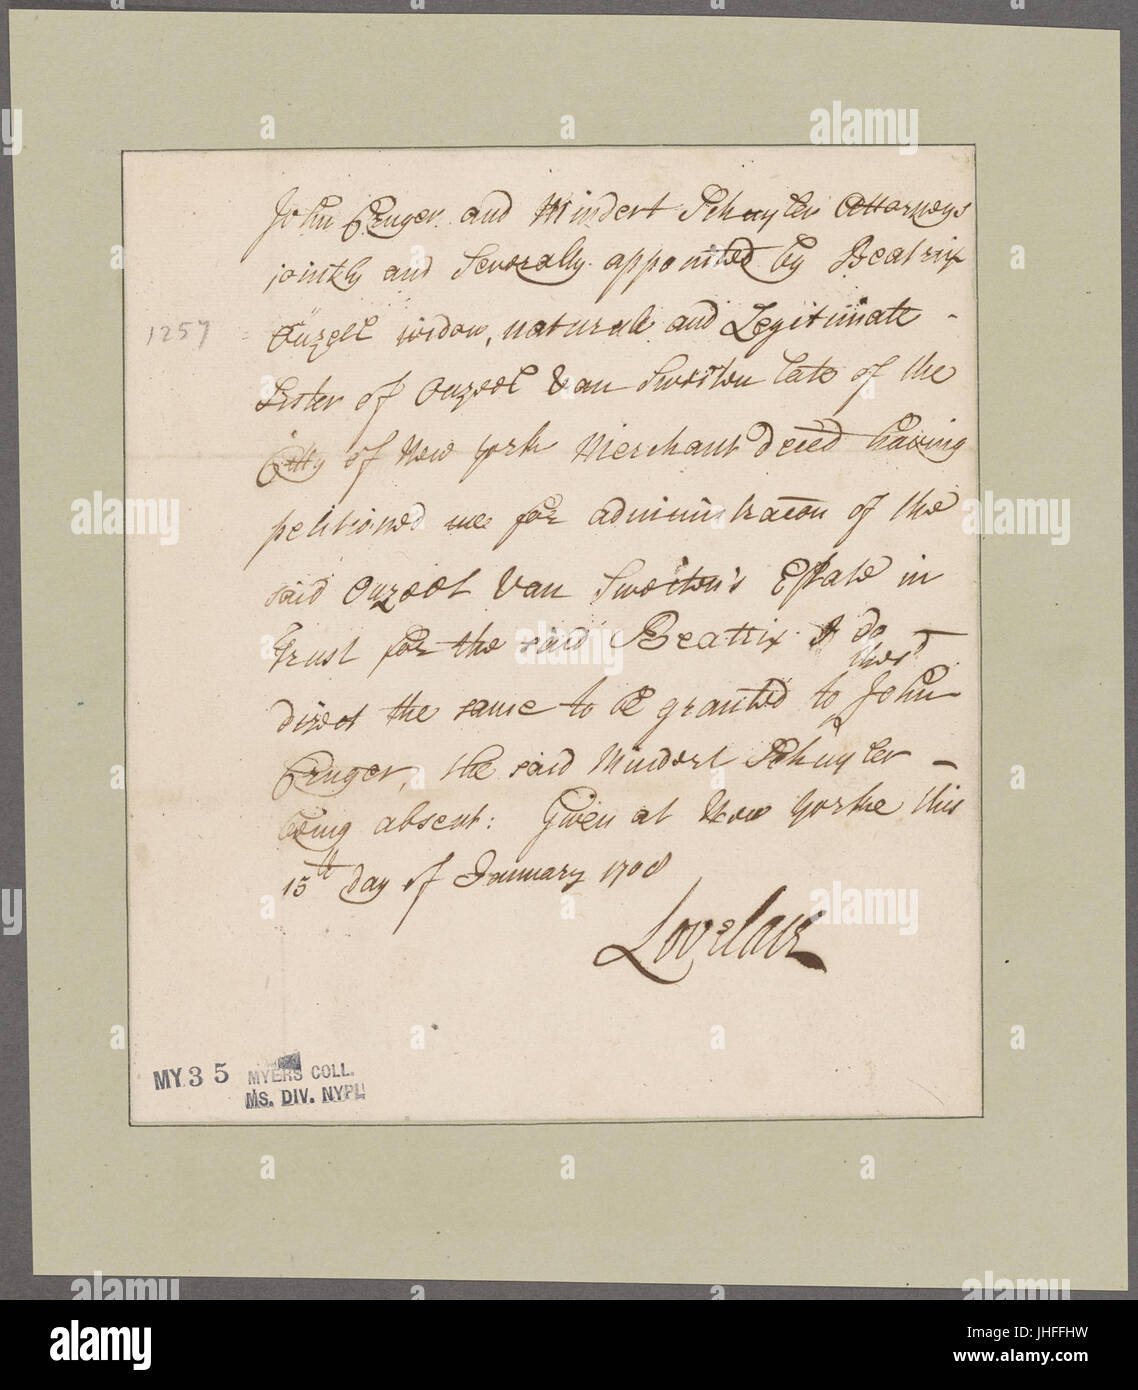 John Cruger and Mindert Schuyler Attorneys
jointly and Severally appointed by Beatrix
Ouzell widow, naturale and Legitimate -
Sister of Ouzeel Van Swerten late of the
Citty of New York Merchant deced having
petitioned me for administracon of the
said Ouzeel Van Swerten's Estate in
trust for the said Beatrix I do
the sd
direct the same to be granted to John
Cruger, the said Mindert Schuyler -
being absent: Given at New Yorke this
15th Day of January 1708
Lovelace
1257
MY 35 MYERS COLL.
MS. DIV. NYPL
alamy
Image ID: JHFFHW
www.alamy.com